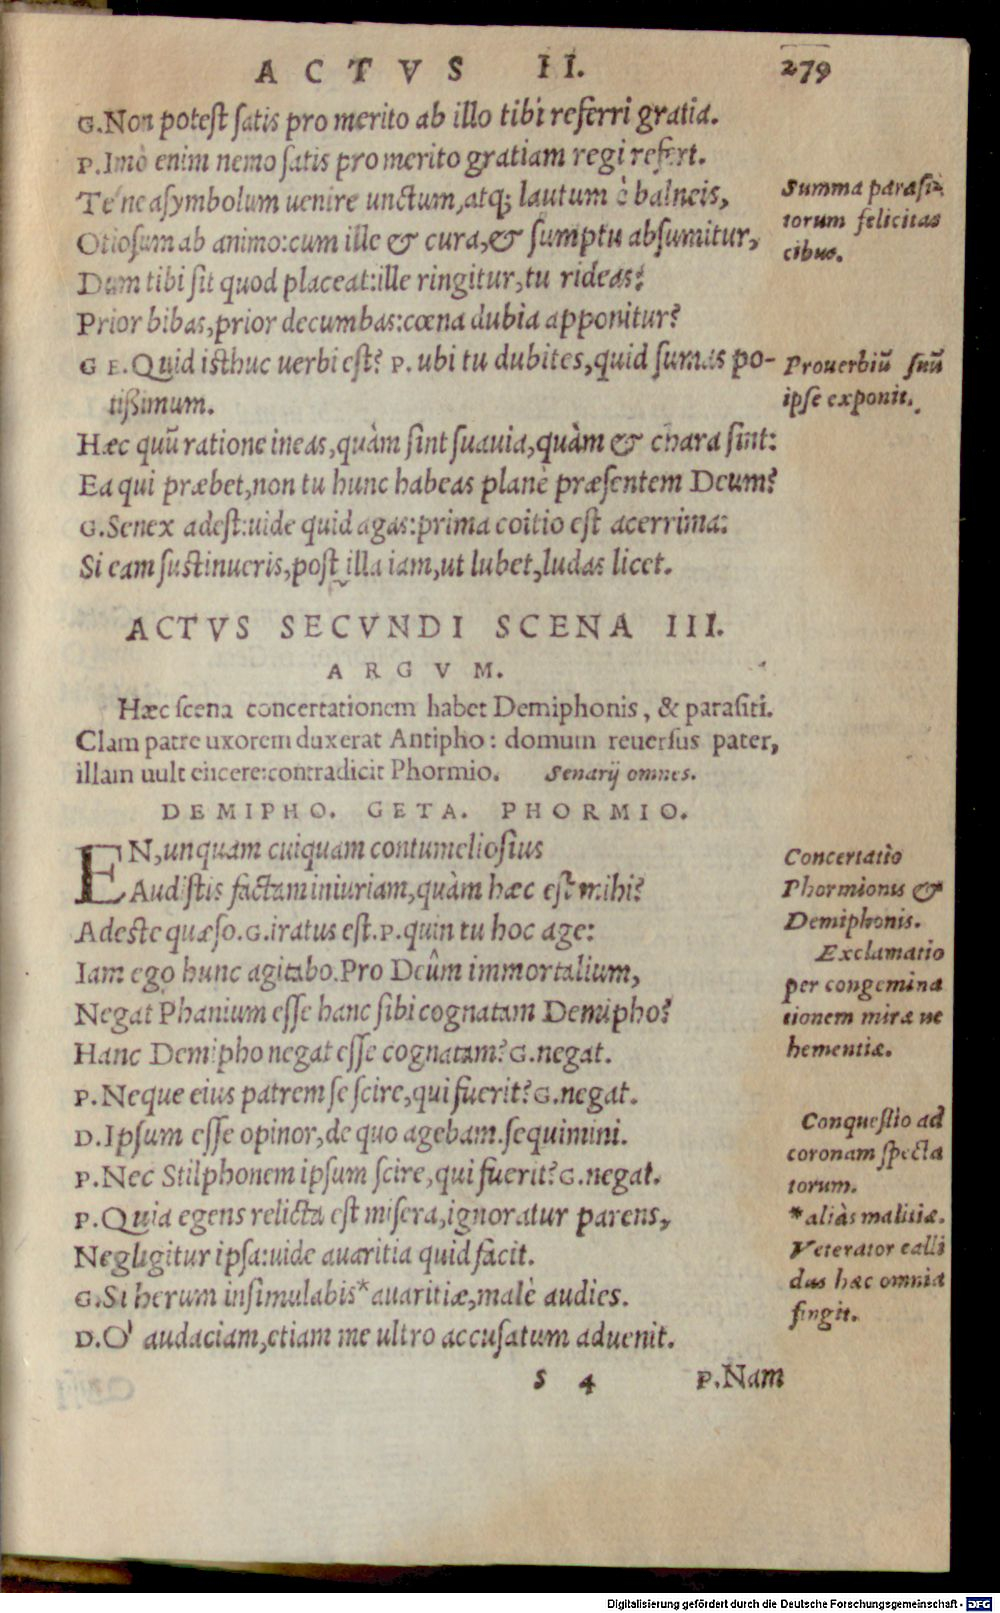 ACTVS II. 279
G.Non potest satis pro merito ab illo tibi referri gratia.
P.Imò enim nemo satis pro merito gratiam regi refert.
Te'ne asymbolum uenire unctum,atq; lautum è balneis,
Otiosum ab animo:cum ille & cura,& sumptu absumitur,
Dum tibi sit quod placeat:ille ringitur,tu rideas?
Prior bibas,prior decumbas:cœna dubia apponitur?
GE.Quid isthuc uerbi est? P.ubi tu dubites,quid sumas po-
tißimum.
Hæc quũ ratione ineas,quàm sint suauia,quàm & chara sint:
Ea qui præbet,non tu hunc habeas planè præsentem Deum?
G.Senex adest:uide quid agas:prima coitio est acerrima:
Si eam sustinueris,post illa iam,ut lubet,ludas licet.
Summa parasi-
torum felicitas
cibus.
Prouerbiũ suũ
ipse exponit.
ACTVS SECVNDI SCENA III.
ARGVM.
Hæc scena concertationem habet Demiphonis, & parasiti.
Clam patre uxorem duxerat Antipho: domum reuersus pater,
illam uult eijcere:contradicit Phormio. Senarij omnes.
DEMIPHO. GETA. PHORMIO.
EN,unquam cuiquam contumeliosius
Audistis factam iniuriam,quàm hæc est mihi?
Adeste quæso.G.iratus est.P.quin tu hoc age:
Iam ego hunc agitabo.Pro Deûm immortalium,
Negat Phanium esse hanc sibi cognatam Demipho?
Hanc Demipho negat esse cognatam?G.negat.
P.Neque eius patrem se scire,qui fuerit?G.negat.
D.Ipsum esse opinor,de quo agebam.sequimini.
P.Nec Stilphonem ipsum scire,qui fuerit?G.negat.
P.Quia egens relicta est misera,ignoratur parens,
Negligitur ipsa:uide auaritia quid facit.
G.Si herum insimulabis*auaritiæ,malè audies.
D.O' audaciam,etiam me ultro accusatum aduenit.
Concertatio
Phormionis &
Demiphonis.
Exclamatio
per congemina
tionem miræ ue
hementiæ.
Conquestio ad
coronam specta
torum.
*aliàs malitiæ.
Veterator calli
dus hæc omnia
fingit.
S 4 P.Nam
Digitalisierung gefördert durch die Deutsche Forschungsgemeinschaft - DFG